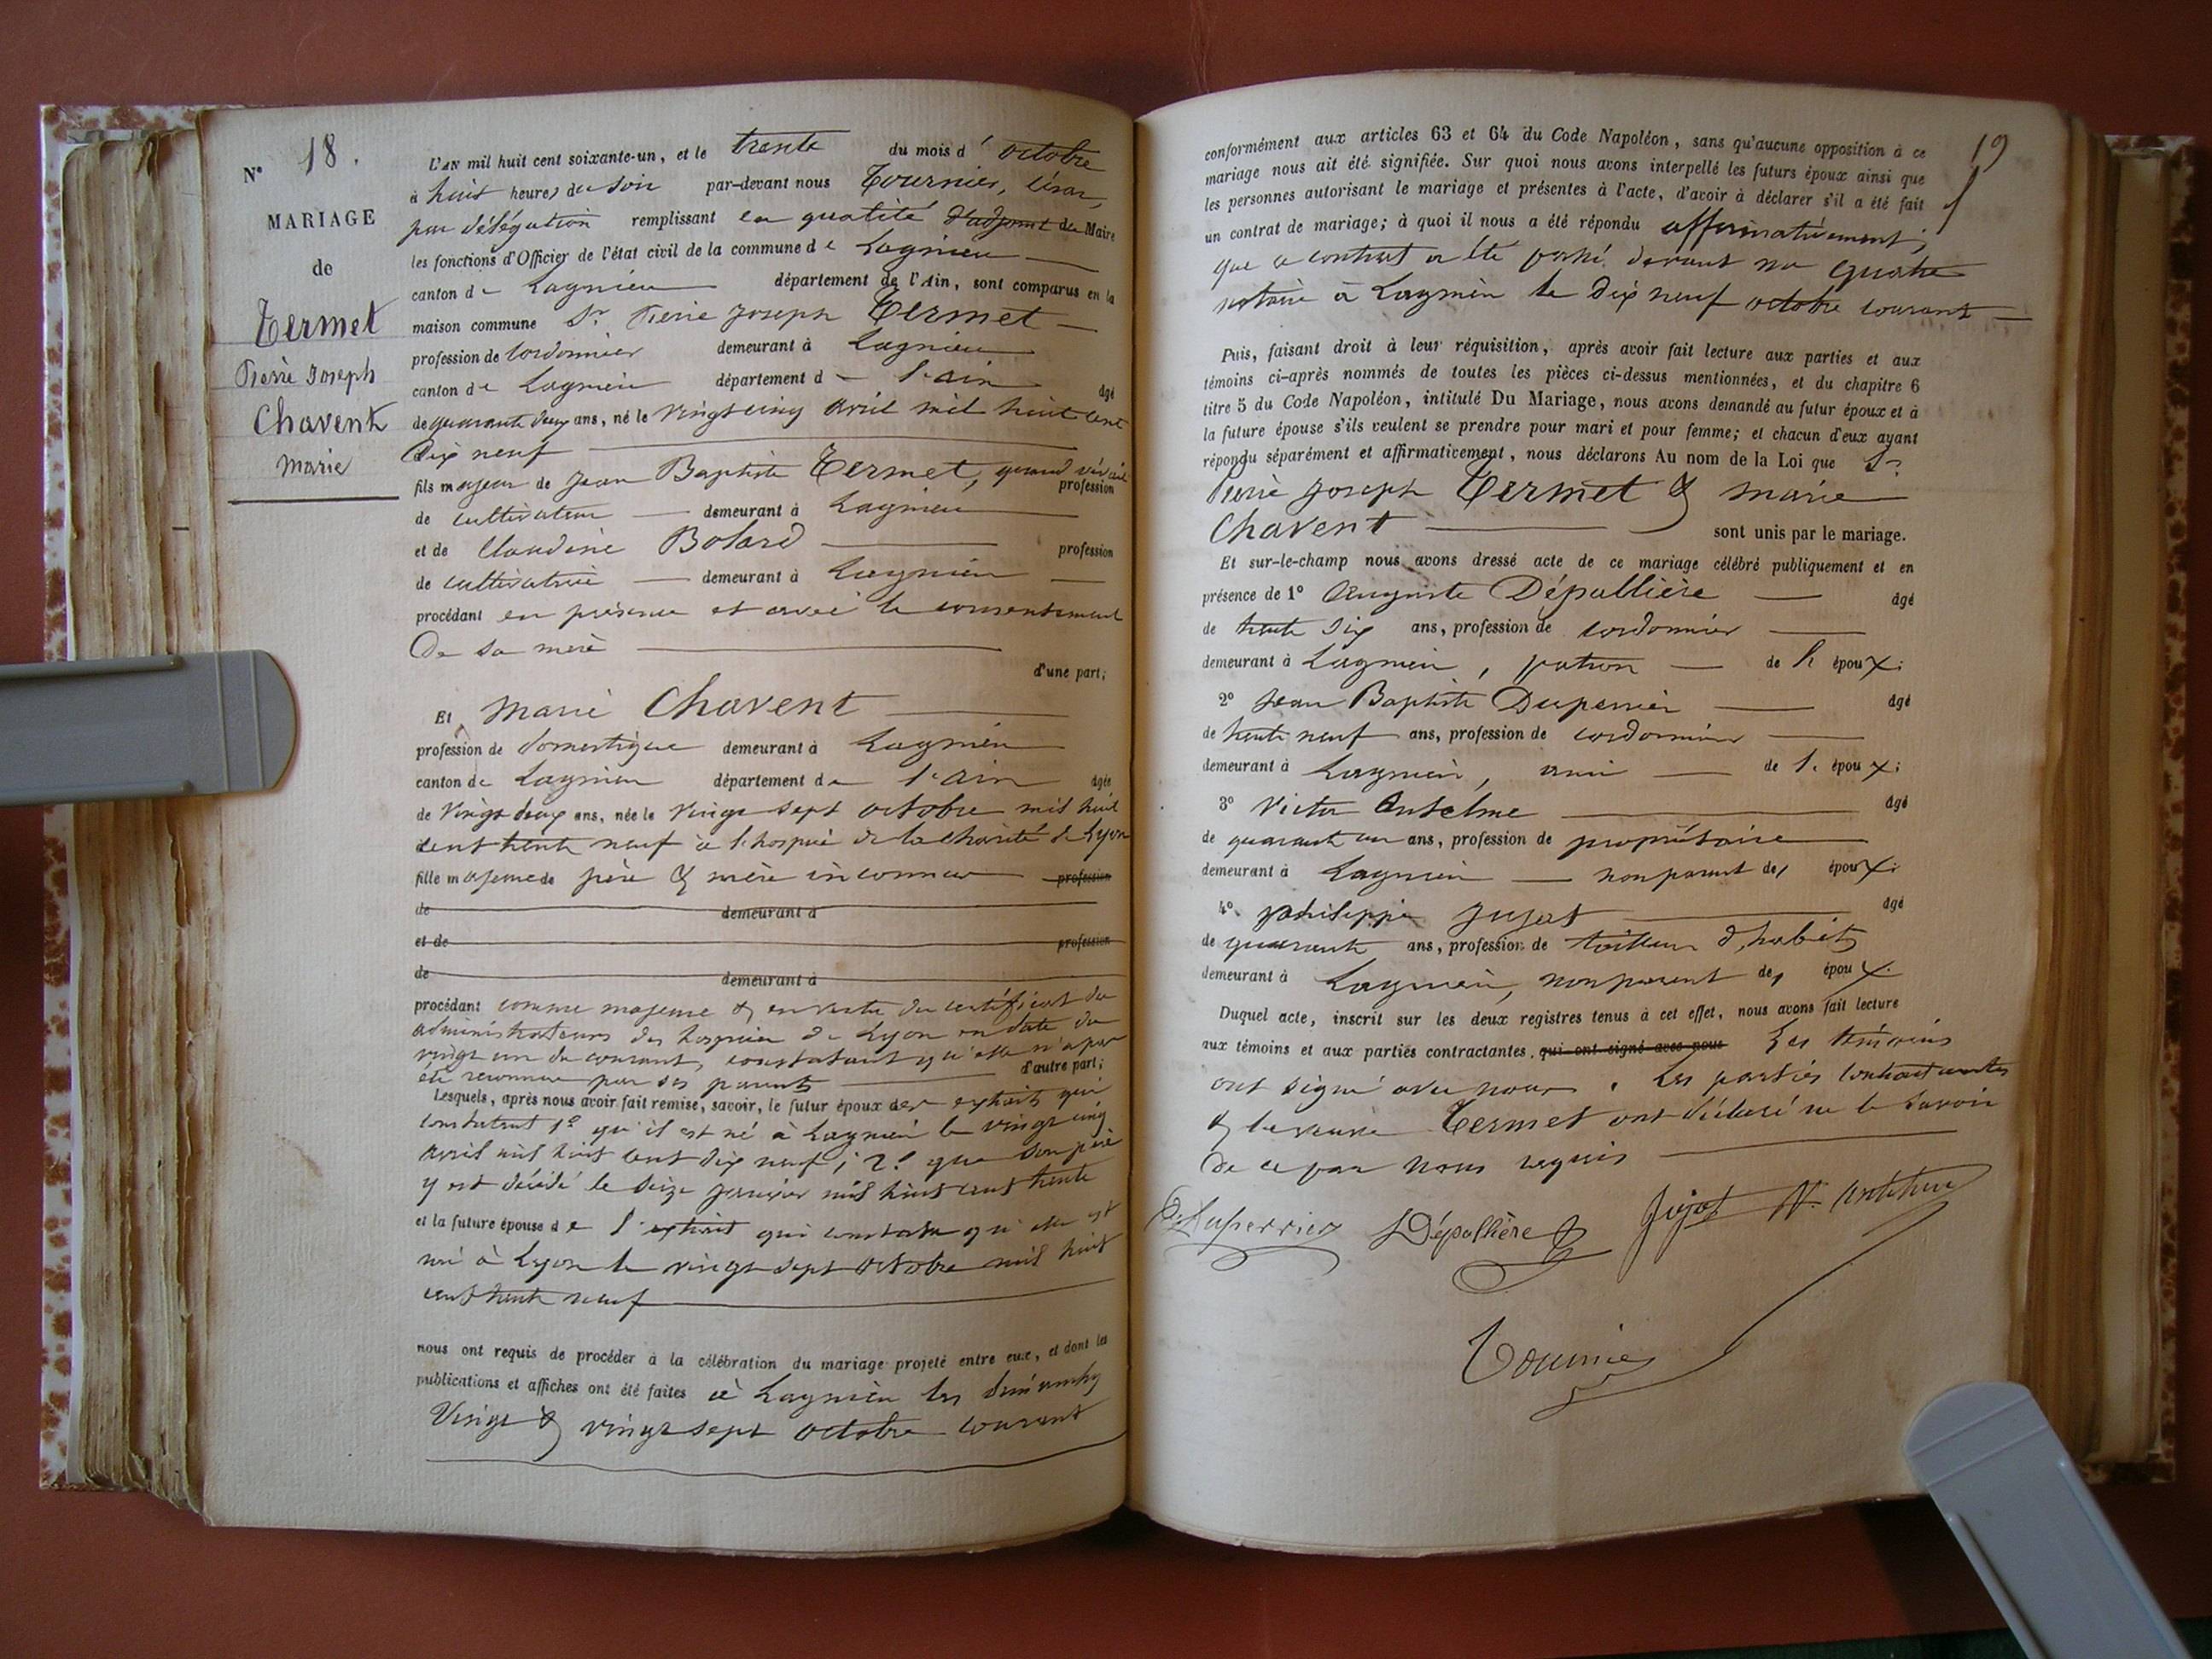 N° 18.
MARIAGE
de
Termet
Pierre Joseph
Chavent
Marie
L'AN mil huit cent soixante-un, et le trente du mois d' octobre
à huit heures du soir par-devant nous Tournier, César,
par délégation remplissant en qualité d'adjoint du Maire
les fonctions d'Officier de l'état civil de la commune de Lagnieu
canton de Lagnieu département de l'Ain, sont comparus en la
maison commune Sr Pierre Joseph Termet
profession de cordonnier demeurant à Lagnieu
canton de Lagnieu département d l'ain âgé
de quarante deux ans, né le vingt cinq avril mil huit cent
dix neuf
fils majeur de Jean Baptiste Termet, quand vivait profession
de cultivateur demeurant à Lagnieu
et de Claudine Bolard profession
de cultivatrice demeurant à Lagnieu
procédant en présence et avec le consentement
de sa mère
d'une part;
Et Marie Chavent
profession de domestique demeurant à Lagnieu
canton de Lagnieu département de l'ain âgée
de vingt deux ans, née le vingt sept octobre mil huit
cent trente neuf à l'hospice de la charité de Lyon
fille majeure de père & mère inconnus profession
de demeurant à
et de profession
de demeurant à
procédant comme majeure & en vertu du certificat des
administrateurs des hospices de Lyon en date du
vingt un du courant, constatant qu'elle n'a pas
été reconnue par ses parents d'autre part;
Lesquels, après nous avoir fait remise, savoir, le futur époux des extraits qui
constatent 1° qu'il est né à Lagnieu le vingt cinq
avril mil huit cent dix neuf; 2° que son père
y est décédé le seize janvier mil huit cent trente
et la future épouse de l'extrait qui constate qu'elle est
née à Lyon le vingt sept octobre mil huit
cent trente neuf
nous ont requis de procéder à la célébration du mariage projeté entre eux, et dont les
publications et affiches ont été faites à Lagnieu les dimanches
vingt & vingt sept octobre courant
19
conformément aux articles 63 et 64 du Code Napoléon, sans qu'aucune opposition à ce
mariage nous ait été signifiée. Sur quoi nous avons interpellé les futurs époux ainsi que
les personnes autorisant le mariage et présentes à l'acte, d'avoir à déclarer s'il a été fait
un contrat de mariage; à quoi il nous a été répondu affirmativement;
que ce contrat a été passé devant me
notaire à Lagnieu le dix neuf octobre courant
Puis, faisant droit à leur réquisition, après avoir fait lecture aux parties et aux
témoins ci-après nommés de toutes les pièces ci-dessus mentionnées, et du chapitre 6
titre 5 du Code Napoléon, intitulé Du Mariage, nous avons demandé au futur époux et à
la future épouse s'ils veulent se prendre pour mari et pour femme; et chacun d'eux ayant
répondu séparément et affirmativement, nous déclarons Au nom de la Loi que Sr
Pierre Joseph Termet & Marie
Chavent sont unis par le mariage.
Et sur-le-champ nous avons dressé acte de ce mariage célébré publiquement et en
présence de 1° Auguste Dépallière âgé
de trente six ans, profession de cordonnier
demeurant à Lagnieu, patron de l' époux;
2° Jean Baptiste Duperrier âgé
de trente neuf ans, profession de cordonnier
demeurant à Lagnieu, ami de l' époux;
3° Victor Antelme âgé
de quarante un ans, profession de propriétaire
demeurant à Lagnieu non parent des époux;
4° Philippe Jujat âgé
de quarante ans, profession de tailleur d'habits
demeurant à Lagnieu, non parent des époux.
Duquel acte, inscrit sur les deux registres tenus à cet effet, nous avons fait lecture
aux témoins et aux parties contractantes, qui ont signé avec nous Les témoins
ont signé avec nous. Les parties contractantes
& la veuve Termet ont déclaré ne le savoir
de ce par nous requis
Duperrier Dépallière Jujat V. Antelme
Tournier